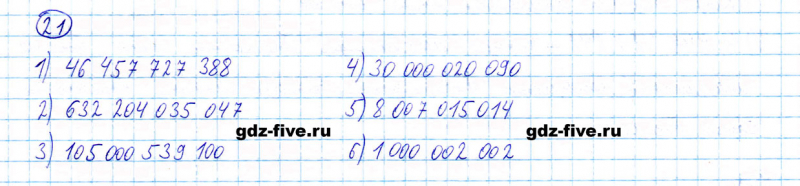 21
1) 46 457 727 388
2) 632 204 035 047
3) 105 000 539 100
4) 30 000 020 090
5) 8 007 015 014
6) 1 000 002 002
gdz-five.ru
gdz-five.ru